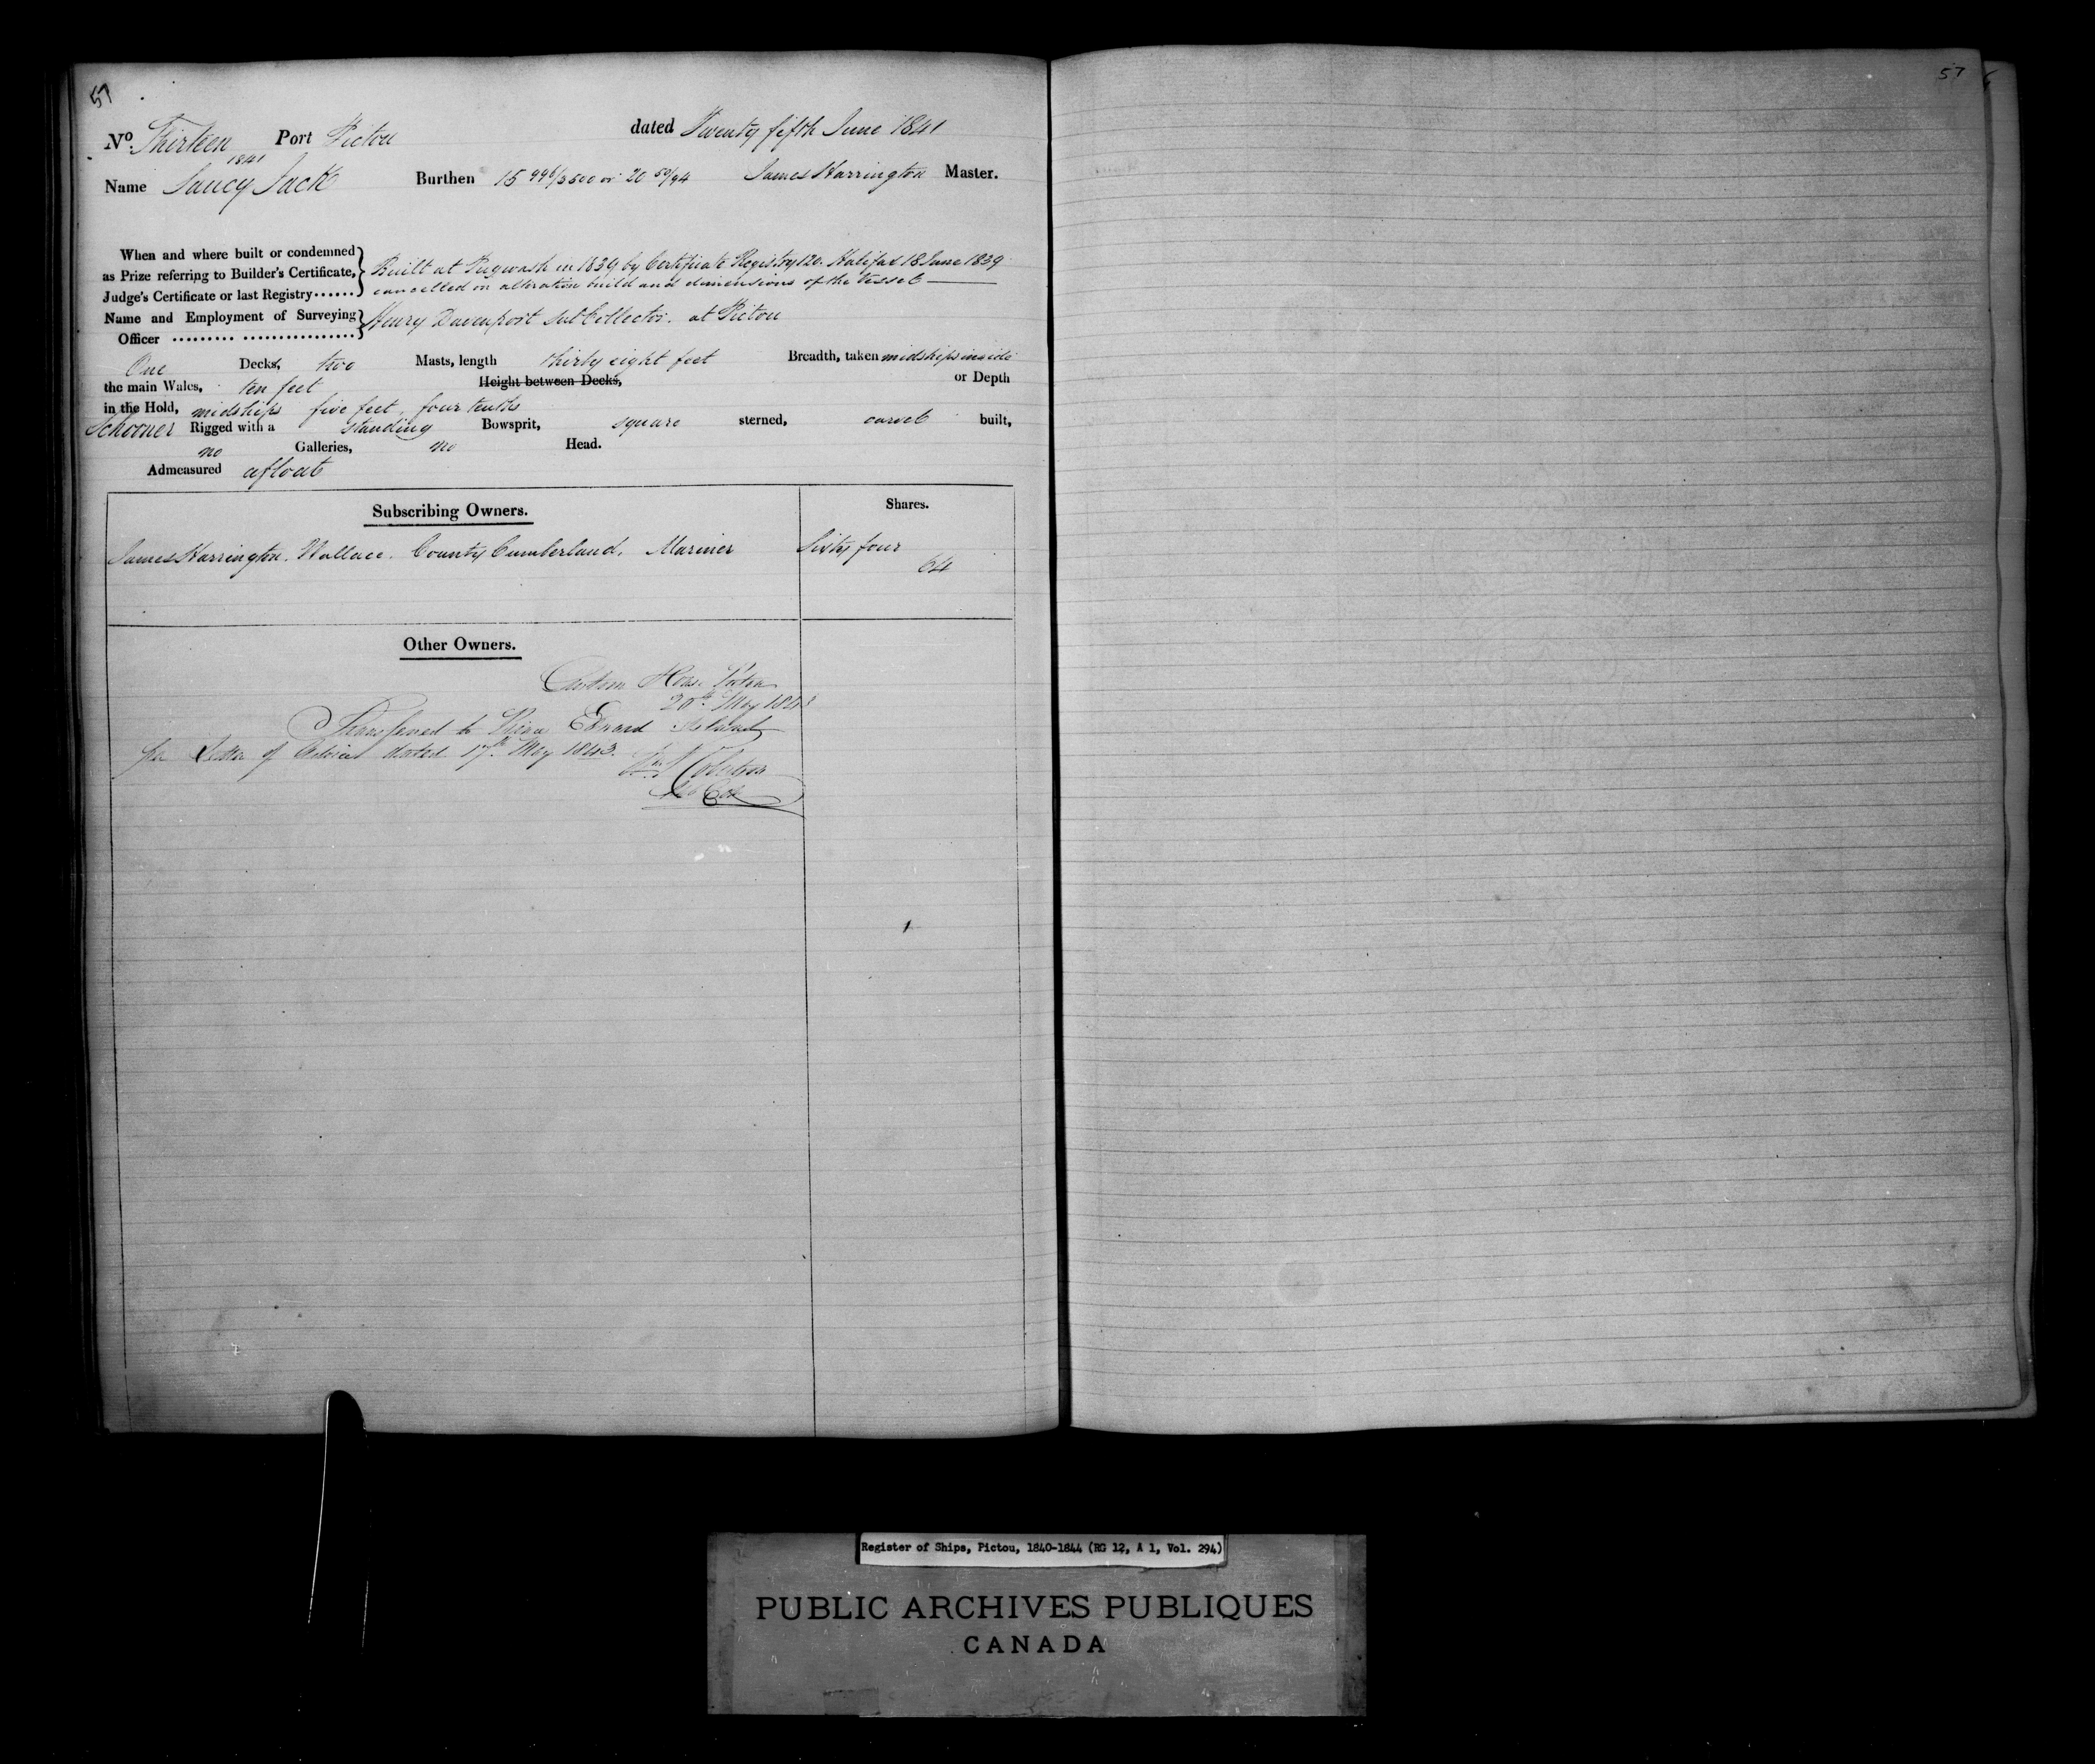 57
No. Thirteen Port Pictou dated Twenty fifth June 1841
1841
Name Saucy Jack Burthen 15 996/3500 or 20 50/94 James Harrington Master.
When and where built or condemned
as Prize referring to Builder's Certificate,
Judge's Certificate or last Registry......
Built at Pugwash in 1839 by Certificate Registry 120. Halifax 18 June 1839
cancelled on alteration build and dimensions of the Vessel
Name and Employment of Surveying
Officer ......... ................
Henry Davenport Sub Collector. at Pictou
One Decks, two Masts, length thirty eight feet Breadth, taken midships inside
the main Wales, ten feet Height between Decks, or Depth
in the Hold, midships five feet, four tenths
Schooner Rigged with a standing Bowsprit, square sterned, carvel built,
no Galleries, no Head.
Admeasured afloat
Subscribing Owners. Shares.
James Harrington. Wallace. County Cumberland. Mariner Sixty four
64
Other Owners.
Custom House Pictou
20th May 1843
Transferred to Prince Edward Island
per Letter of Advice dated 17th May 1843.
57
Register of Ships, Pictou, 1840-1844 (RG 12, A 1, Vol. 294)
PUBLIC ARCHIVES PUBLIQUES
CANADA